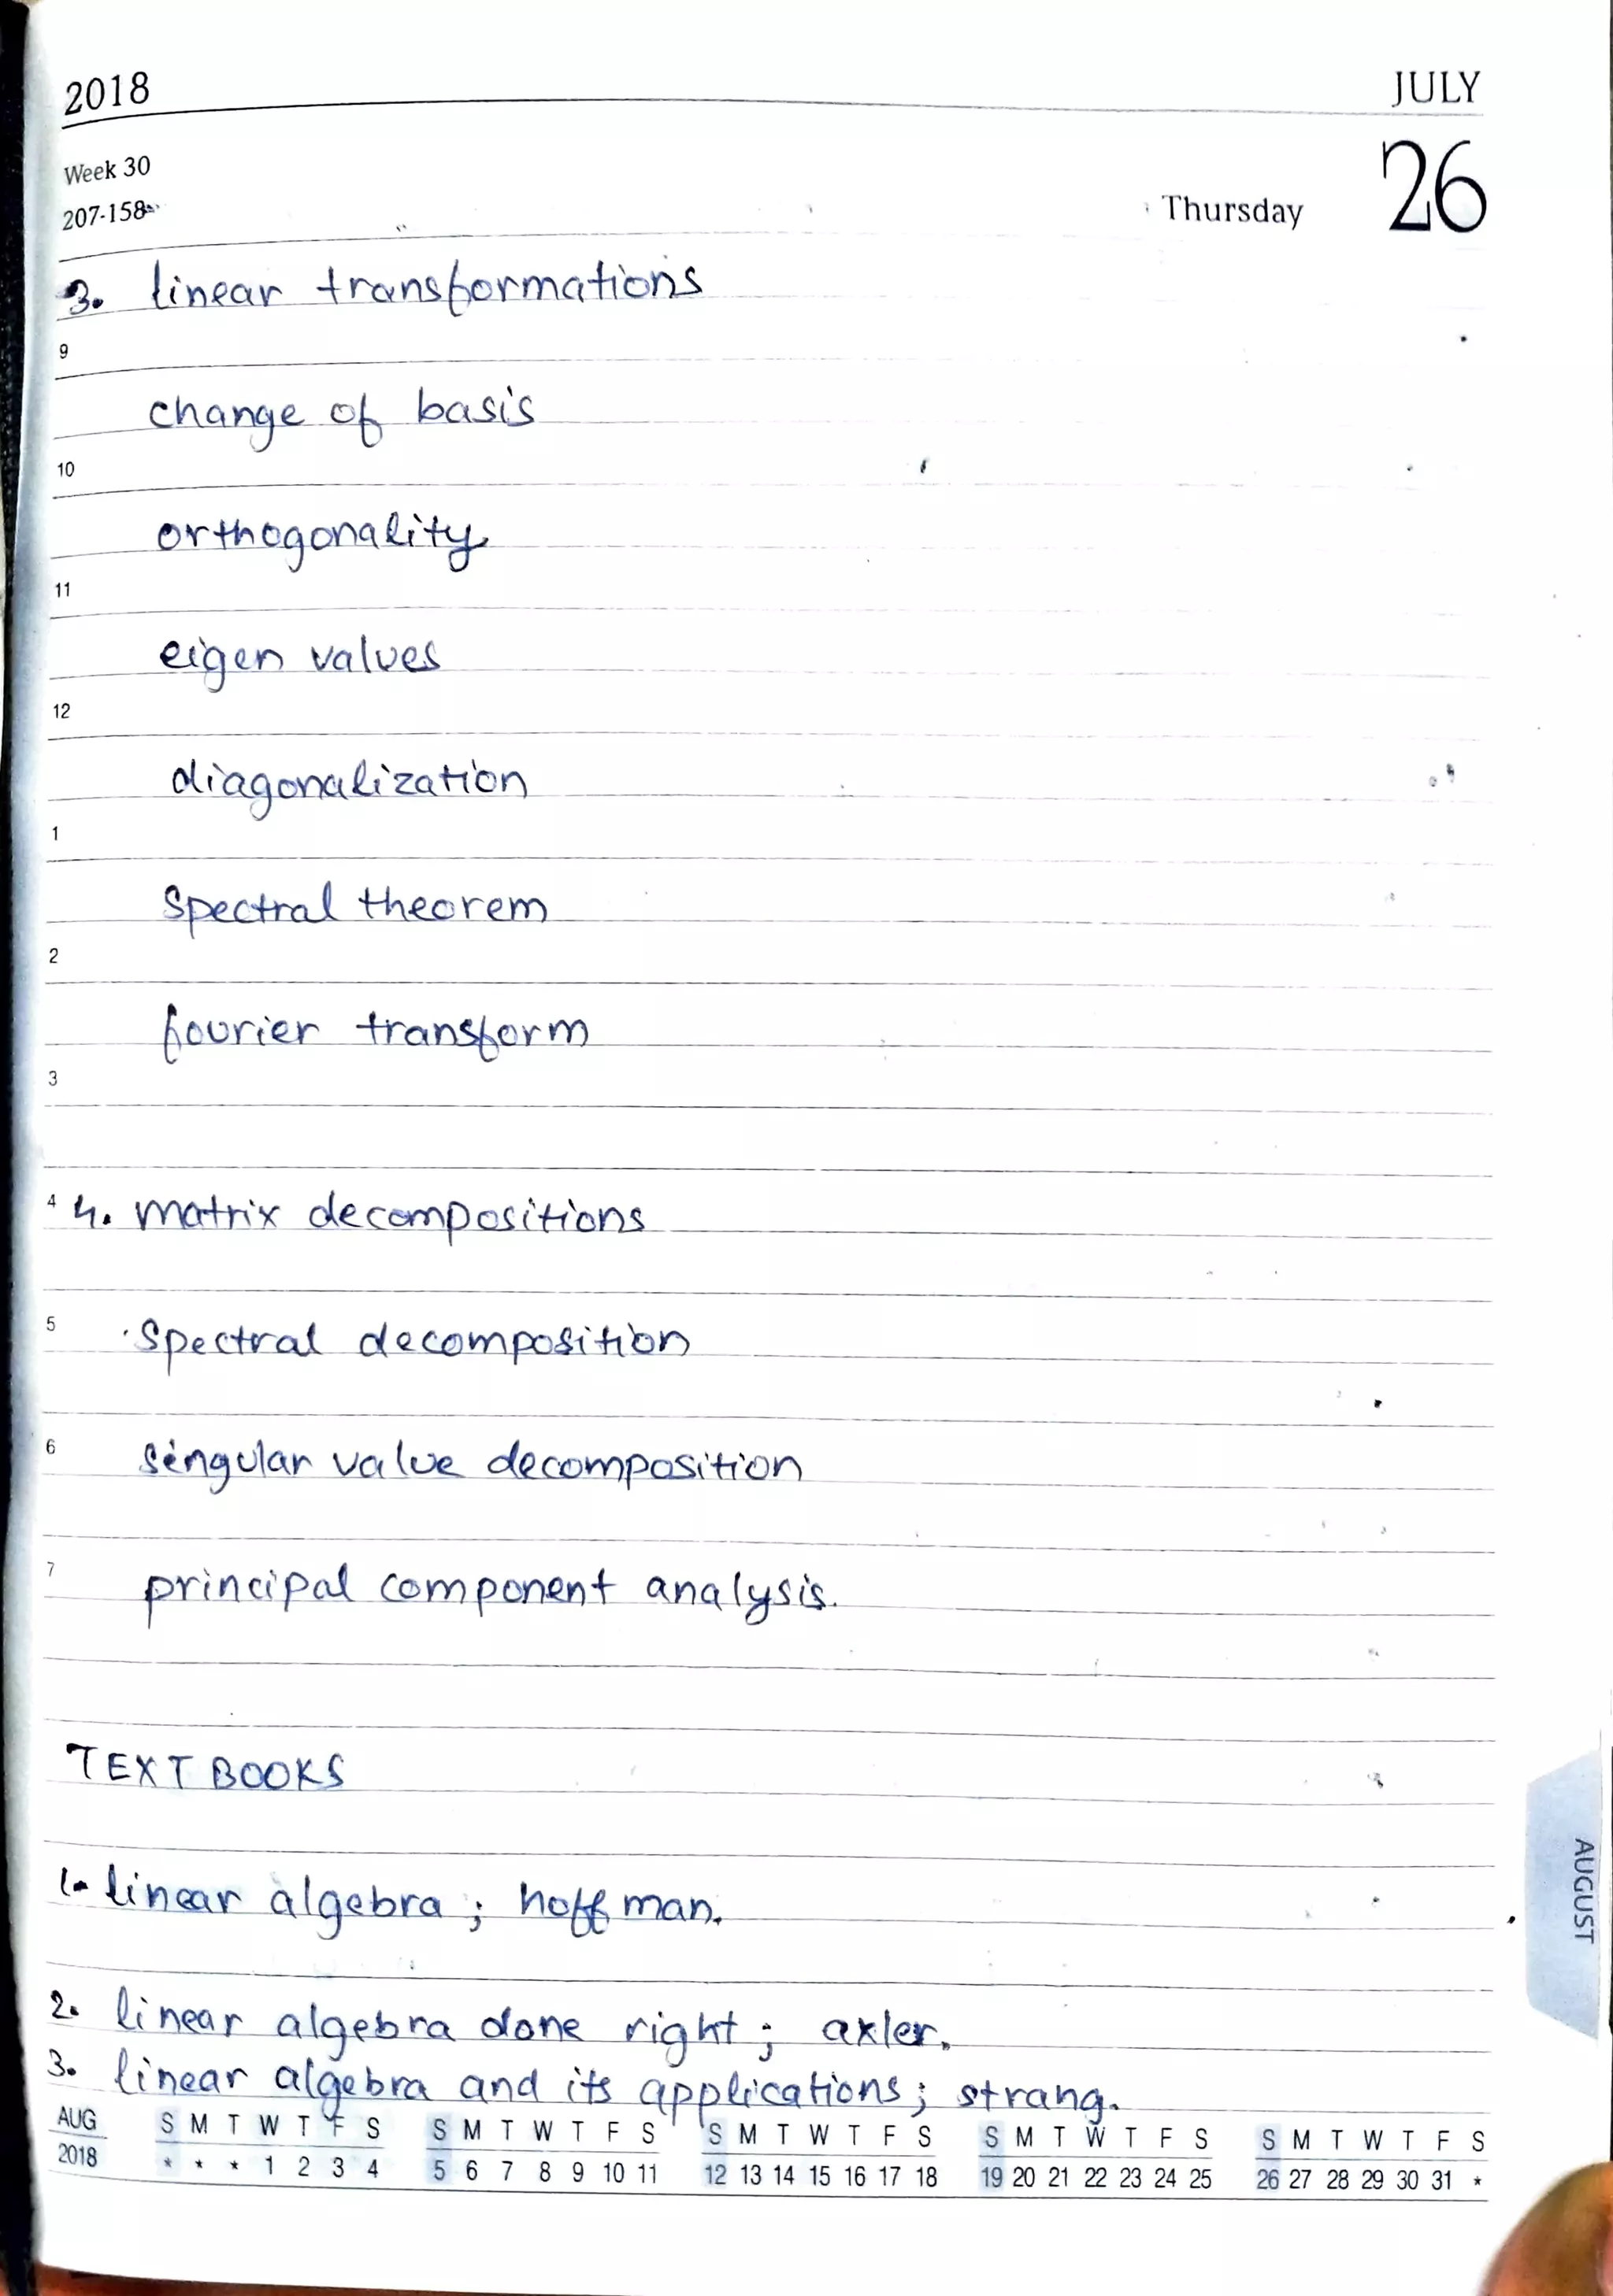 2018 JULY
Week 30
207-158 Thursday 26
3. linear transformations
9
change of basis
10
orthogonality
11
eigen values
12
diagonalization
1
Spectral theorem
2
fourier transform
3
4 4. matrix decompositions
5 Spectral decomposition
6 singular value decomposition
7 principal component analysis.
TEXT BOOKS
1. linear algebra ; hoffman.
2. linear algebra done right ; axler.
3. linear algebra and its applications ; strang.
AUG S M T W T F S S M T W T F S S M T W T F S S M T W T F S S M T W T F S
2018 * * * 1 2 3 4 5 6 7 8 9 10 11 12 13 14 15 16 17 18 19 20 21 22 23 24 25 26 27 28 29 30 31 *
AUGUST